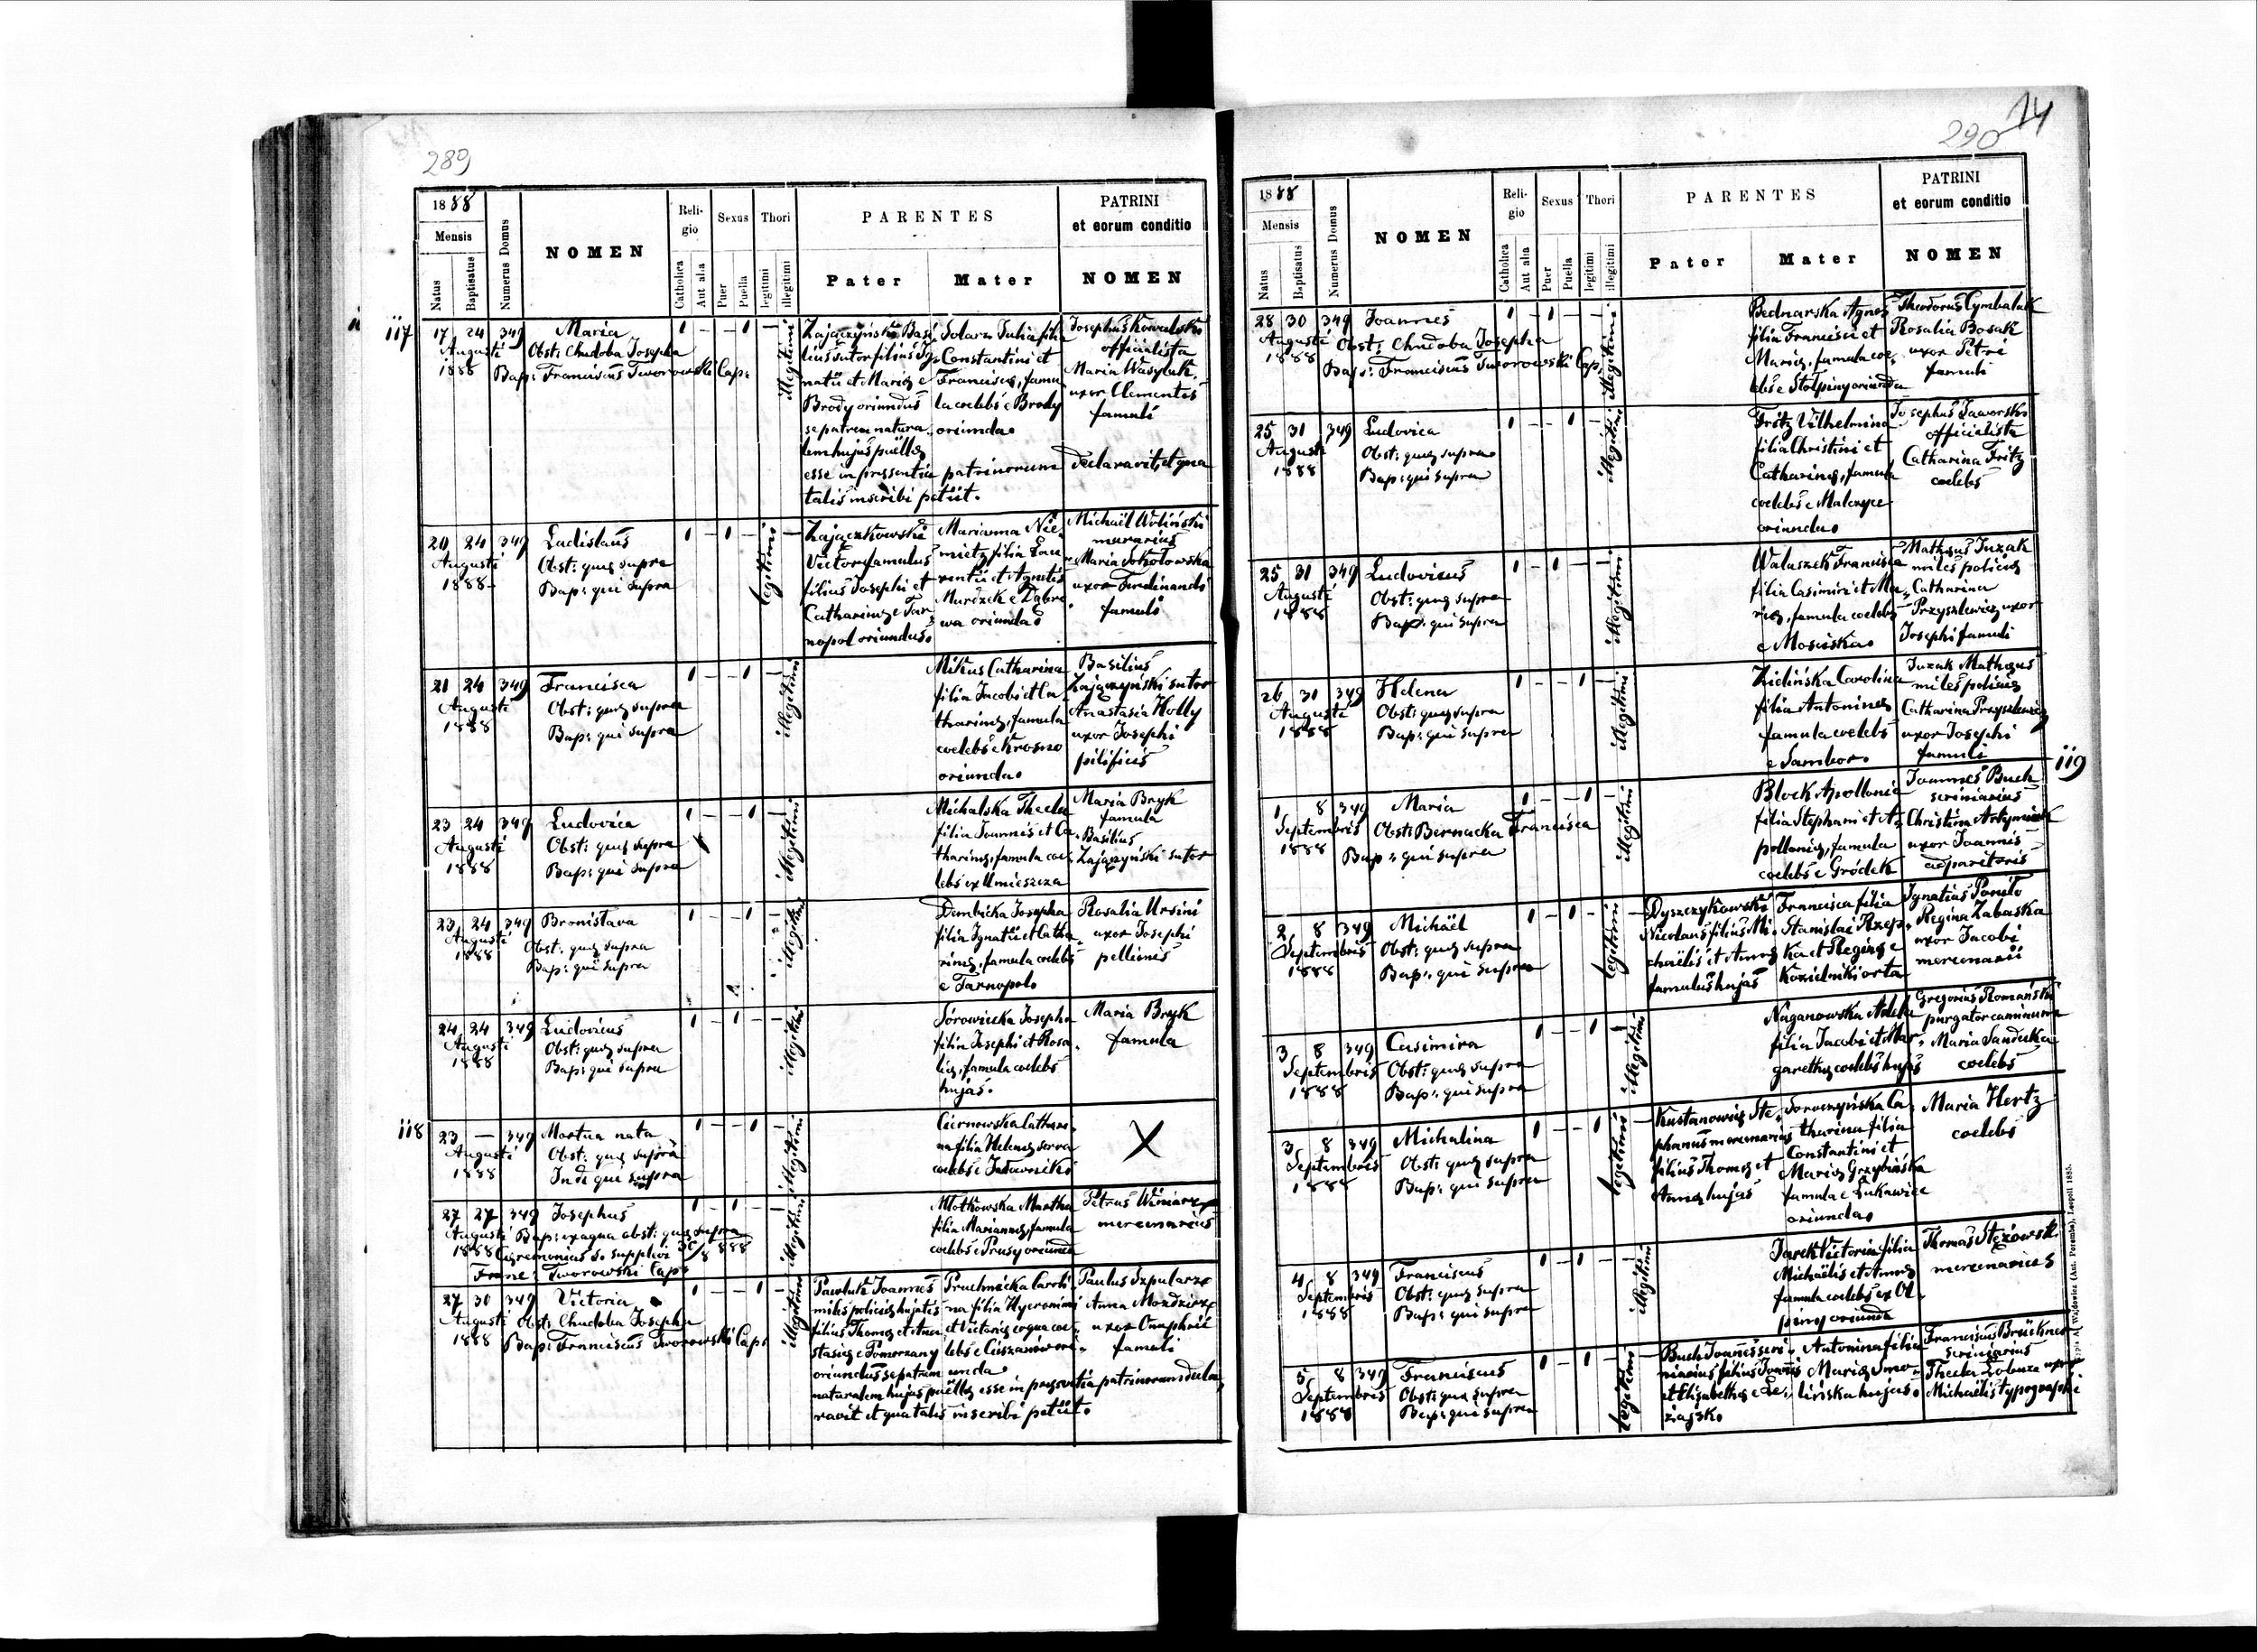 289
1888
Mensis
Natus
Baptisatus
Numerus Domus
NOMEN
Reli-
gio
Catholica
Aut alia
Sexus
Puer
Puella
Thori
legitimi
illegitimi
PARENTES
Pater
Mater
PATRINI
et eorum conditio
NOMEN
117
17 24 349 Maria
Augusti
1888
Obst: Chudoba Josepha
Bap: Franciscus Tworowski Cap:
illegitimi
Zajączyński Basi
lius sutor filius Ig
natii et Mariæ e
Brody oriundus
se patrem natura
lem hujus puellæ
esse in præsentia patrinorum declaravit, et qua
talis inscribi petiit.
Solarz Julia filia
Constantini et
Franciscæ, famu
la coelebs e Brody
oriunda
Josephus Kowalski
officialista
Maria Wasyluk
uxor Clementis
famuli
20 24 349 Ladislaus
Augusti
1888
Obst: quæ supra
Bap: qui supra
legitimi
Zajączkowski
Victor famulus
filius Josephi et
Catharinæ e Tar
nopol oriundus
Marianna Nie
mietz filia Lau
rentii et Agnetis
Murdzek e Dąbro
wa oriunda
Michaël Woliński
murarius
Maria Sokołowska
uxor Ferdinandi
famuli
21 24 349 Francisca
Augusti
1888
Obst: quæ supra
Bap: qui supra
illegitimi
Mikus Catharina
filia Jacobi et Ca
tharinæ, famula
coelebs e Krosno
oriunda
Basilius
Zajączyński sutor
Anastasia Holly
uxor Josephi
pilificis
23 24 349 Ludovica
Augusti
1888
Obst: quæ supra
Bap: qui supra
illegitimi
Michalska Thecla
filia Joannis et Ca
tharinæ, famula coe
lebs ex Umieszcza
Maria Bryk
famula
Basilius
Zajączyński sutor
23 24 349 Bronislava
Augusti
1888
Obst: quæ supra
Bap: qui supra
illegitimi
Dembicka Josepha
filia Ignatii et Catha
rinæ, famula coelebs
e Tarnopol
Rosalia Ursini
uxor Josephi
pellionis
24 24 349 Ludovicus
Augusti
1888
Obst: quæ supra
Bap: qui supra
illegitimi
Sorowicka Josepha
filia Josephi et Rosa
liæ, famula coelebs
hujas.
Maria Bryk
famula
118
23 — 349 Mortua nata
Augusti
1888
Obst: quæ supra
Ind: qui supra
illegitimi
filia Helenæ serva
coelebs e
X
27 27 349 Josephus
Augusti
1888
Bap: ex aqua obst: quæ supra
Cæremonias S. supplevit 30/8 888
Franc: Tworowski Cap:
illegitimi
Młotkowska Martha
filia Mariannæ, famula
coelebs e Prusy oriunda
Petrus Winiarz
mercenarius
27 30 349 Victoria
Augusti
1888
Obst: Chudoba Josepha
Bap: Franciscus Tworowski Cap:
illegitimi
Pawluk Joannes
miles policiæ hujatis
filius Thomæ et Ana
stasiæ e Pomorzany
oriundus se patrem
naturalem hujus puellæ esse in præsentia patrinorum decla
ravit et qua talis inscribi petiit.
Pruchnicka Caroli
na filia Hyeronimi
et Victoriæ coqua coe
lebs e Cieszanów ori
unda
Paulus Szpularz
Anna Mozdzierz
uxor Onuphrii
famuli
290
14
1888
Mensis
Natus
Baptisatus
Numerus Domus
NOMEN
Reli-
gio
Catholica
Aut alia
Sexus
Puer
Puella
Thori
legitimi
illegitimi
PARENTES
Pater
Mater
PATRINI
et eorum conditio
NOMEN
28 30 349 Joannes
Augusti
1888
Obst: Chudoba Josepha
Bap: Franciscus Tworowski Cap:
illegitimi
Bednarska Agnes
filia Francisci et
Mariæ, famula coe
lebs e Stołpiny oriunda
Theodorus Cymbalak
Rosalia Bosak
uxor Petri
famuli
25 31 349 Ludovica
Augusti
1888
Obst: quæ supra
Bap: qui supra
illegitimi
Fritz Vilhelmina
filia Christini et
Catharinæ, famula
coelebs e Malczyce
oriunda
Josephus Jaworski
officialista
Catharina Fritz
coelebs
25 31 349 Ludovicus
Augusti
1888
Obst: quæ supra
Bap: qui supra
illegitimi
Walaszek Francisca
filia Casimiri et Ma
riæ, famula coelebs
e Mosciska
Mathæus Juzak
miles policiæ
Catharina
Przyszlewicz uxor
Josephi famuli
26 31 349 Helena
Augusti
1888
Obst: quæ supra
Bap: qui supra
illegitimi
Zielińska Carolina
filia Antoninæ
famula coelebs
e Sambor
Juzak Mathæus
miles policiæ
Catharina Przyszlewicz
uxor Josephi
famuli
119
1 8 349 Maria
Septembris
1888
Obst: Bernacka Francisca
Bap: qui supra
illegitimi
Block Apollonia
filia Stephani et A
polloniæ, famula
coelebs e Gródek
Joannes Buch
scriniarius
Christina Artymiak
uxor Joannis
apparitoris
2 8 349 Michaël
Septembris
1888
Obst: quæ supra
Bap: qui supra
legitimi
Dyszczykowski
Nicolaus filius Mi
chaëlis et Annæ
famulus hujas
Francisca filia
Stanislai Rzep
ka et Reginæ e
Kozielniki orta
Ignatius Poniło
Regina Zabawska
uxor Jacobi
mercenarii
3 8 349 Casimira
Septembris
1888
Obst: quæ supra
Bap: qui supra
illegitimi
Naganowska Adela
filia Jacobi et Mar
garethæ coelebs hujas
Gregorius Romański
purgator caminorum
Maria Sandecka
coelebs
3 8 349 Michalina
Septembris
1888
Obst: quæ supra
Bap: qui supra
legitimi
Kustanowicz Ste
phanus mercenarius
filius Thomæ et
Annæ hujas
Soroczyńska Ca
tharina filia
Constantini et
Mariæ Grzybińska
famula e Łukawice
oriunda
Maria Hertz
coelebs
4 8 349 Franciscus
Septembris
1888
Obst: quæ supra
Bap: qui supra
illegitimi
Jarek Victoria filia
Michaëlis et Annæ
famula coelebs ex Ol
piny oriunda
Thomas Stężowski
mercenarius
5 8 349 Franciscus
Septembris
1888
Obst: quæ supra
Bap: qui supra
legitimi
Buch Joannes scri
niarius filius Joannis
et Elisabethæ e Le
żajsk
Antonina filia
Mariæ Smo
lińska hujas
Franciscus Brückner
scriniarius
Thecla Łobaza uxor
Michaëlis typographi